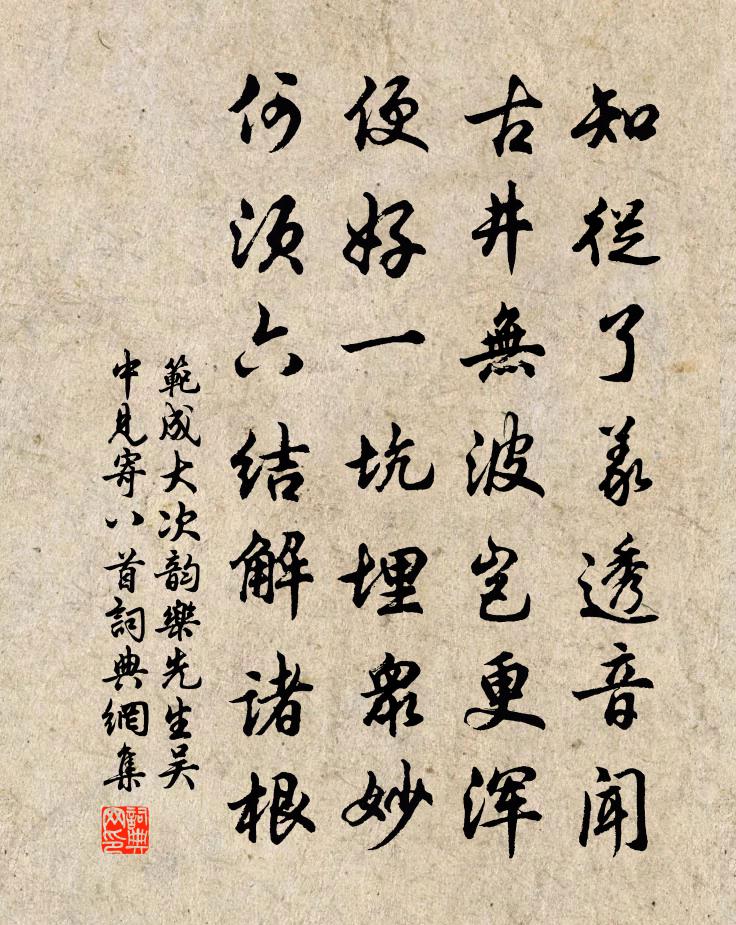 知從了義透音聞
古井無波岂更浑
便好一坑埋衆妙
何须六结解诸根
範成大次韵樂先生吴
中見寄八首詞典網集
詞典网印